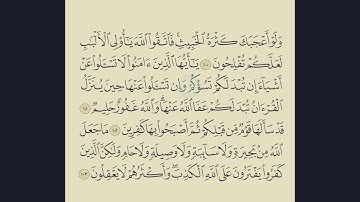 وَلَوْ أَعْجَبَكَ كَثْرَةُ ٱلْخَبِيثِ ۚ فَٱتَّقُوا۟ ٱللَّهَ يَـٰٓأُو۟لِى ٱلْأَلْبَـٰبِ
لَعَلَّكُمْ تُفْلِحُونَ ١٠٠ يَـٰٓأَيُّهَا ٱلَّذِينَ ءَامَنُوا۟ لَا تَسْـَٔلُوا۟ عَنْ
أَشْيَآءَ إِن تُبْدَ لَكُمْ تَسُؤْكُمْ وَإِن تَسْـَٔلُوا۟ عَنْهَا حِينَ يُنَزَّلُ
ٱلْقُرْءَانُ تُبْدَ لَكُمْ عَفَا ٱللَّهُ عَنْهَا ۗ وَٱللَّهُ غَفُورٌ حَلِيمٌ ١٠١
قَدْ سَأَلَهَا قَوْمٌ مِّن قَبْلِكُمْ ثُمَّ أَصْبَحُوا۟ بِهَا كَـٰفِرِينَ ١٠٢ مَا جَعَلَ
ٱللَّهُ مِنۢ بَحِيرَةٍ وَلَا سَآئِبَةٍ وَلَا وَصِيلَةٍ وَلَا حَامٍ ۙ وَلَـٰكِنَّ ٱلَّذِينَ
كَفَرُوا۟ يَفْتَرُونَ عَلَى ٱللَّهِ ٱلْكَذِبَ ۖ وَأَكْثَرُهُمْ لَا يَعْقِلُونَ ١٠٣